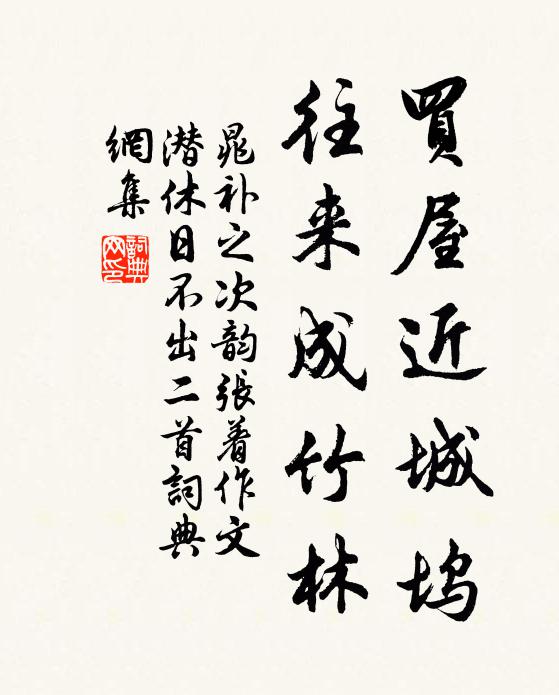 買屋近城坞
往来成竹林
晁补之次韵張著作文
潜休日不出二首詞典
網集
詞典
网印